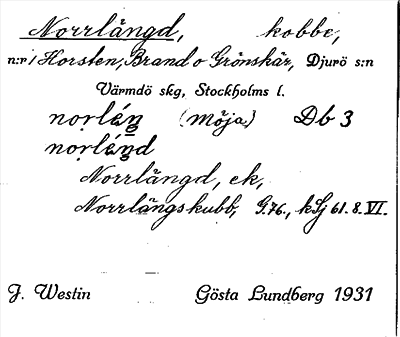 Norrlångd, kobbe,
n:r 1 Horsten, Brand o Grönskär, Djurö s:n
Värmdö skg, Stockholms l.
norlǻŋ (möja) Db 3
norlǻŋd
Norrlångd, ek,
Norrlångskubb, G.76., kSj 61.8.VI.
J. Westin Gösta Lundberg 1931